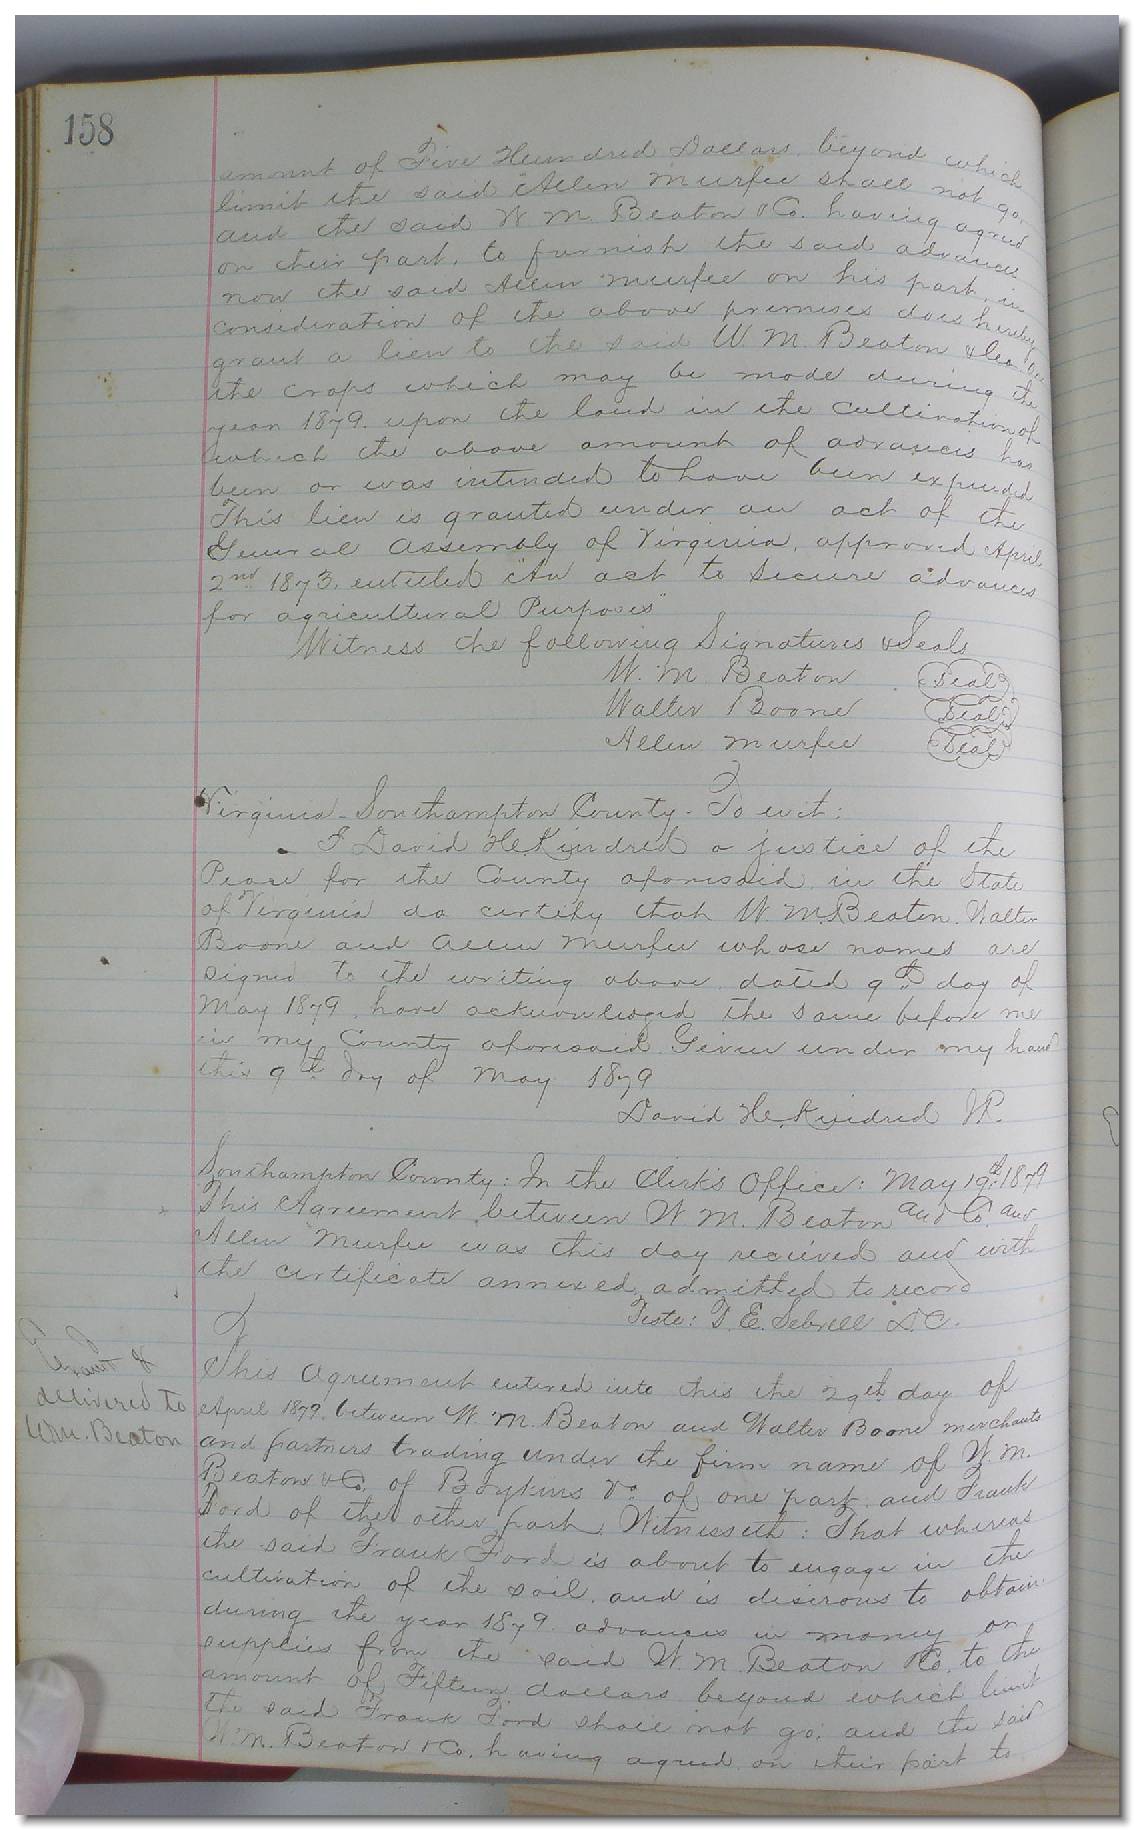 158
amount of Five Hundred Dollars, beyond which
limit the said Allen Murfee shall not go,
and the said W. M. Beaton & Co. having agreed
on their part, to furnish the said advances
now the said Allen Murfee on his part, in
consideration of the above premises does hereby
grant a lien to the said W. M. Beaton & Co. on
the crops which may be made during the
year 1879. upon the land in the cultivation of
which the above amount of advances has
been or was intended to have been expended
This lien is granted under an act of the
General Assembly of Virginia, approved April
2nd 1873, entitled "An act to secure advances
for agricultural Purposes"
Witness the following Signatures & Seals
W. M. Beaton Seal
Walter Boone Seal
Allen Murfee Seal
Virginia - Southampton County - To wit:
I David H. Kindred a justice of the
Peace for the County aforesaid, in the State
of Virginia do certify that W. M. Beaton, Walter
Boone and Allen Murfee whose names are
signed to the writing above dated 9th day of
May 1879, have acknowledged the same before me
in my County aforesaid. Given under my hand
this 9th day of May 1879
David H. Kindred J.P.
Southampton County: In the Clerk's Office: May 19th 1879
This Agreement between W. M. Beaton and Co. and
Allen Murfee was this day received and with
the certificate annexed, admitted to record
Teste: T. E. Sebrell D.C.
delivered to
Wm. Beaton
This Agreement entered into this the 29th day of
April 1879, between W. M. Beaton and Walter Boone merchants
and partners trading under the firm name of W. M.
Beaton & Co. of Boykins Va. of one part, and Frank
Ford of the other part, Witnesseth: That whereas
the said Frank Ford is about to engage in the
cultivation of the soil, and is desirous to obtain
during the year 1879. advances in money or
supplies from the said W. M. Beaton & Co. to the
amount of Fifteen dollars beyond which limit
the said Frank Ford shall not go; and the said
W. M. Beaton & Co. having agreed on their part to